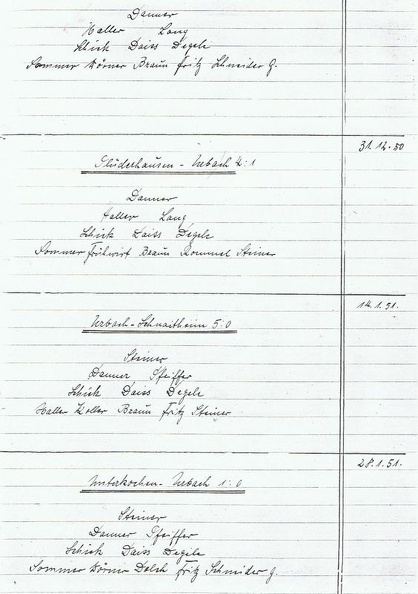 Danner
Haller Lang
Schick Daiss Degele
Sommer Körner Braun Fritz Schneider G.
31.12.50
Plüderhausen - Urbach 2:1
Danner
Haller Lang
Schick Daiss Degele
Sommer Braun Rommel Steiner
14.1.51.
Urbach - Schnaitheim 5:0
Steiner
Danner Pfeiffer
Schick Daiss Degele
Haller Koller Braun Fritz Steiner
28.1.51.
Unterkochen - Urbach 1:0
Steiner
Danner Pfeiffer
Schick Daiss Degele
Sommer Körner Fritz Schneider G.